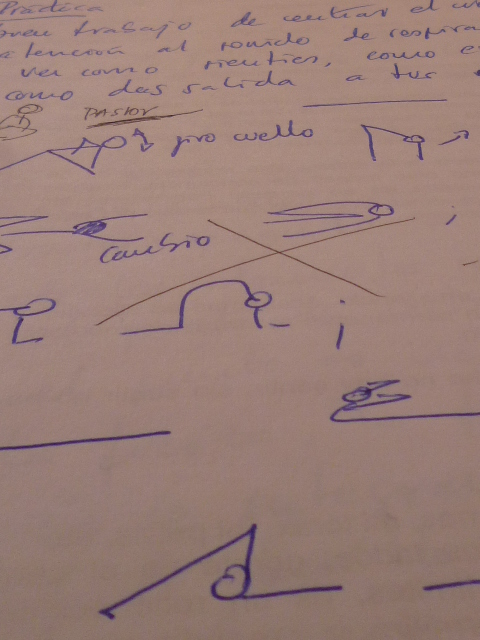 Práctica
breve trabajo de centrar el
atención al sonido de respira
ver como sientes, como e
como das salida a tus
PASTOR
giro cuello
cambio